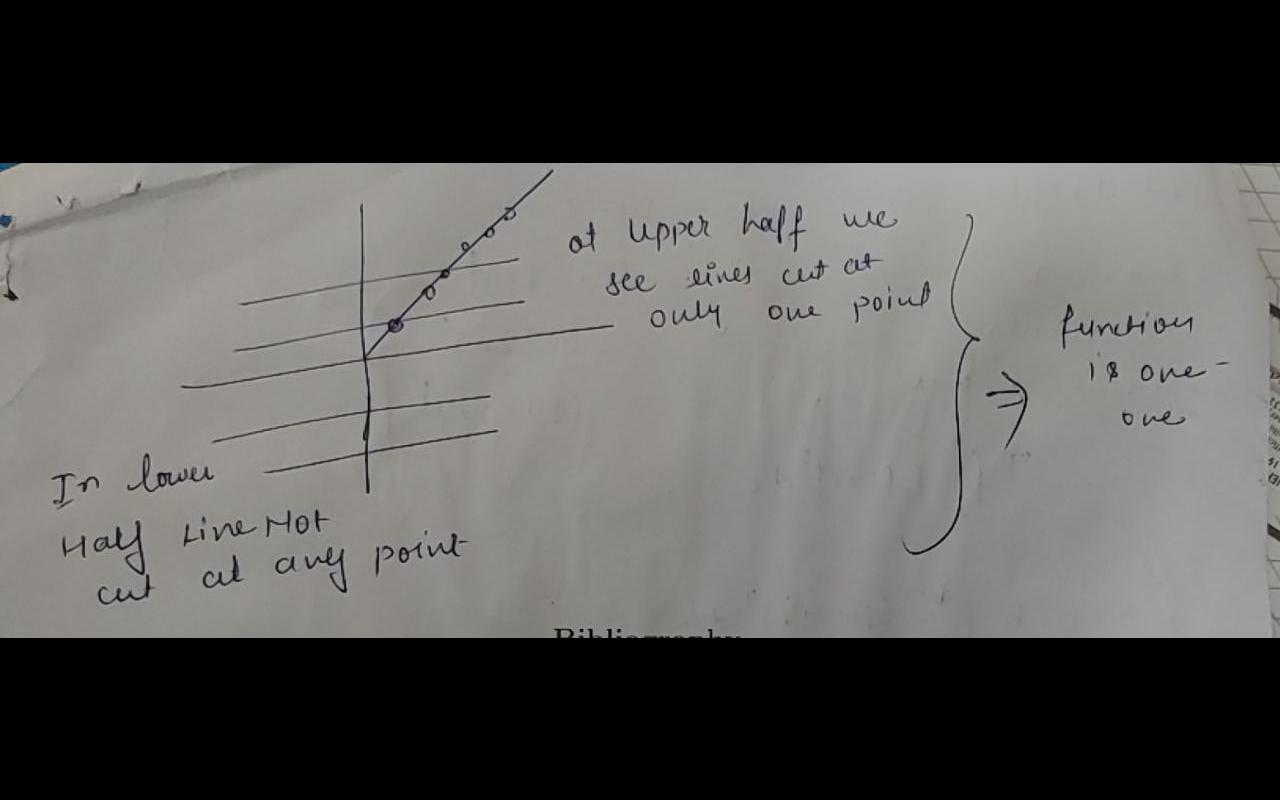 at upper half we
see lines cut at
only one point
function
is one-
one
In lower
Half Line Not
cut at any point